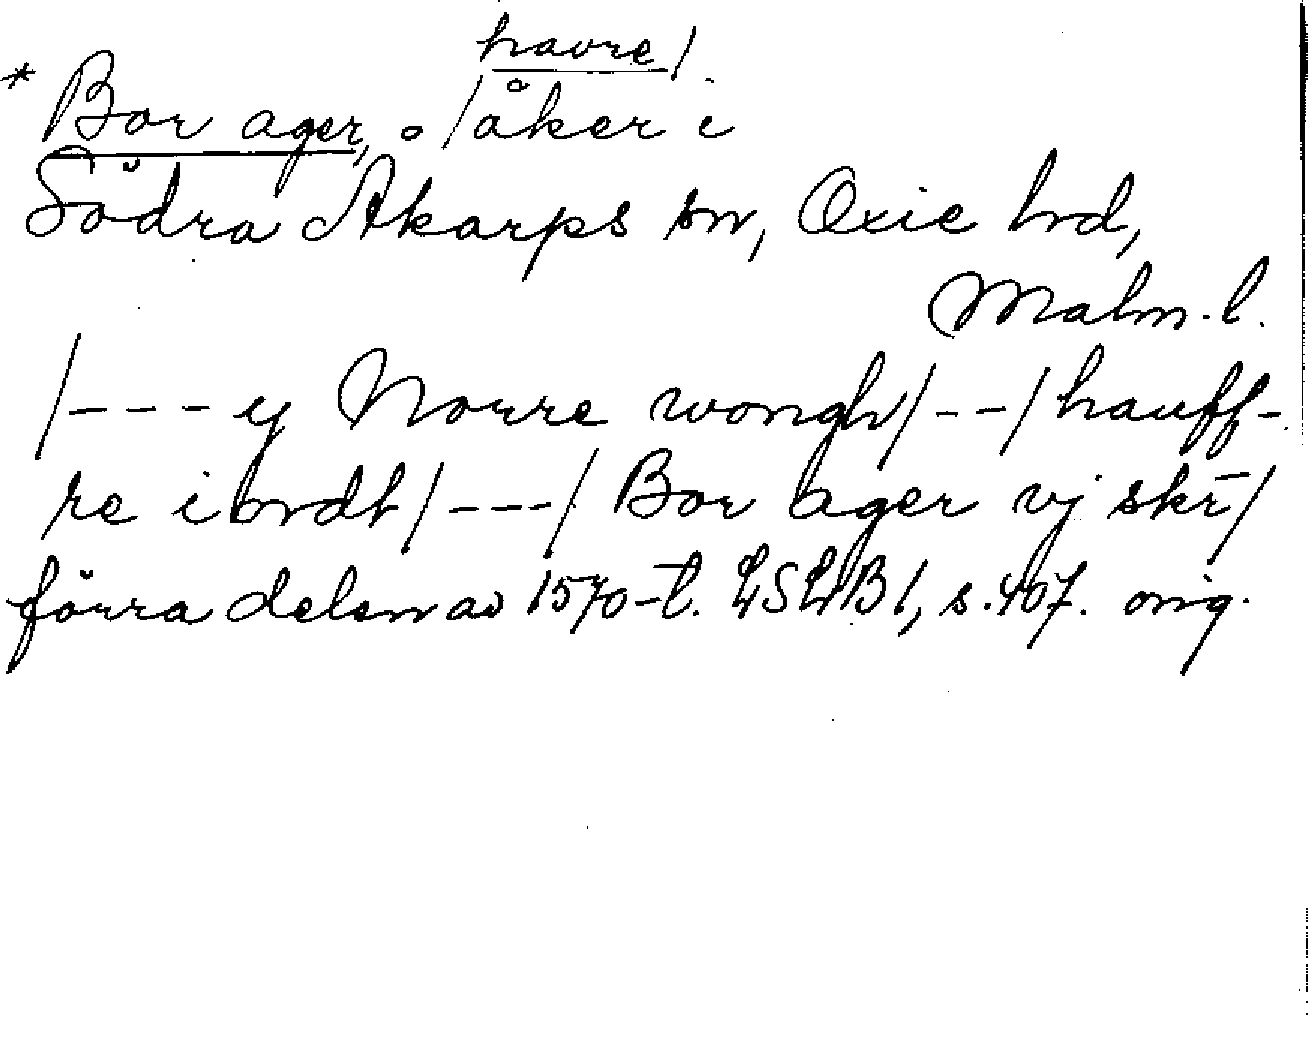 havre/.
* Bor ager, o /åker i
Södra Åkarps sn, Oxie hd,
Malm. l.
/---y Norre wongh/--/hauff-
re iordt/---/ Bor ager vj skr̄/
förra delen av 1570-t. LSLB 1, s.407. orig.